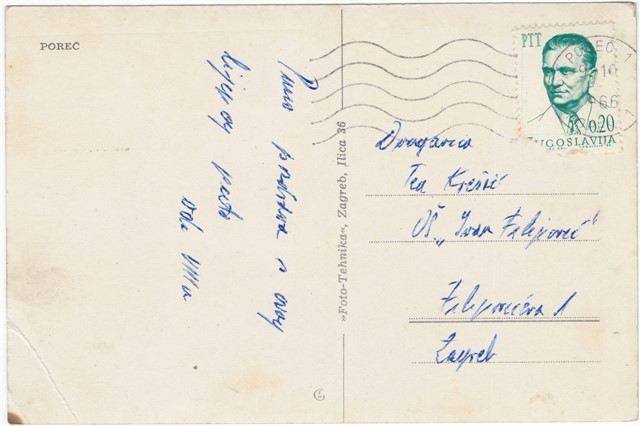 POREČ
Puno pozdrava s ovog
lijepog mjesta
vaša
»Foto-Tehnika«, Zagreb, Ilica 36
PTT
0,20
JUGOSLAVIJA
POREČ 1
10
66
Drugarica
Tea Krešić
OŠ „Ivan Filipović"
Filipovićeva 1
Zagreb